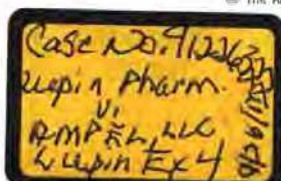 Case No. 91226322
Lupin Pharm.
v.
AMPEL, LLC
Lupin Ex 4